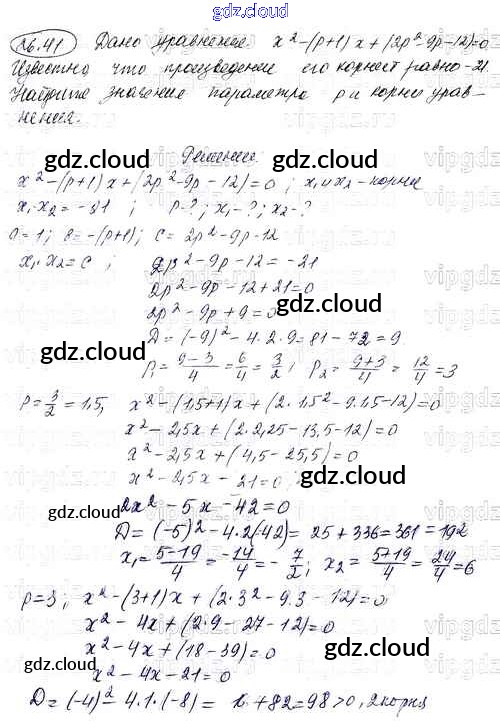 gdz.cloud
№6.41 Дано уравнение x² - (p+1)x + (2p² - 9p - 12) = 0
Известно что произведение его корней равно -21.
Найдите значение параметра p и корни урав-
нения.
Решение.
gdz.cloud gdz.cloud
x² - (p+1)x + (2p² - 9p - 12) = 0 ; x₁ и x₂ - корни
x₁·x₂ = -21 ; p-? ; x₁-? ; x₂-?
a = 1; c = -(p+1); c = 2p² - 9p - 12
x₁·x₂ = c ; 2p² - 9p - 12 = -21
2p² - 9p - 12 + 21 = 0
2p² - 9p + 9 = 0
gdz.cloud
D = (-9)² - 4·2·9 = 81 - 72 = 9
gdz.cloud
p₁ = (9-3)/4 = 6/4 = 3/2 ; p₂ = (9+3)/4 = 12/4 = 3
p = 3/2 = 1,5, x² - (1,5+1)x + (2·1,5² - 9·1,5 - 12) = 0
x² - 2,5x + (2·2,25 - 13,5 - 12) = 0
x² - 2,5x + (4,5 - 25,5) = 0
x² - 2,5x - 21 = 0
gdz.cloud gdz.cloud
2x² - 5x - 42 = 0
D = (-5)² - 4·2(-42) = 25 + 336 = 361 = 19²
x₁ = (5-19)/4 = -14/4 = -7/2 ; x₂ = (5+19)/4 = 24/4 = 6
p = 3 ; x² - (3+1)x + (2·3² - 9·3 - 12) = 0
x² - 4x + (2·9 - 27 - 12) = 0
x² - 4x + (18 - 39) = 0
gdz.cloud gdz.cloud
x² - 4x - 21 = 0
D = (-4)² - 4·1·(-8) = 16 + 82 = 98 > 0, 2 корня